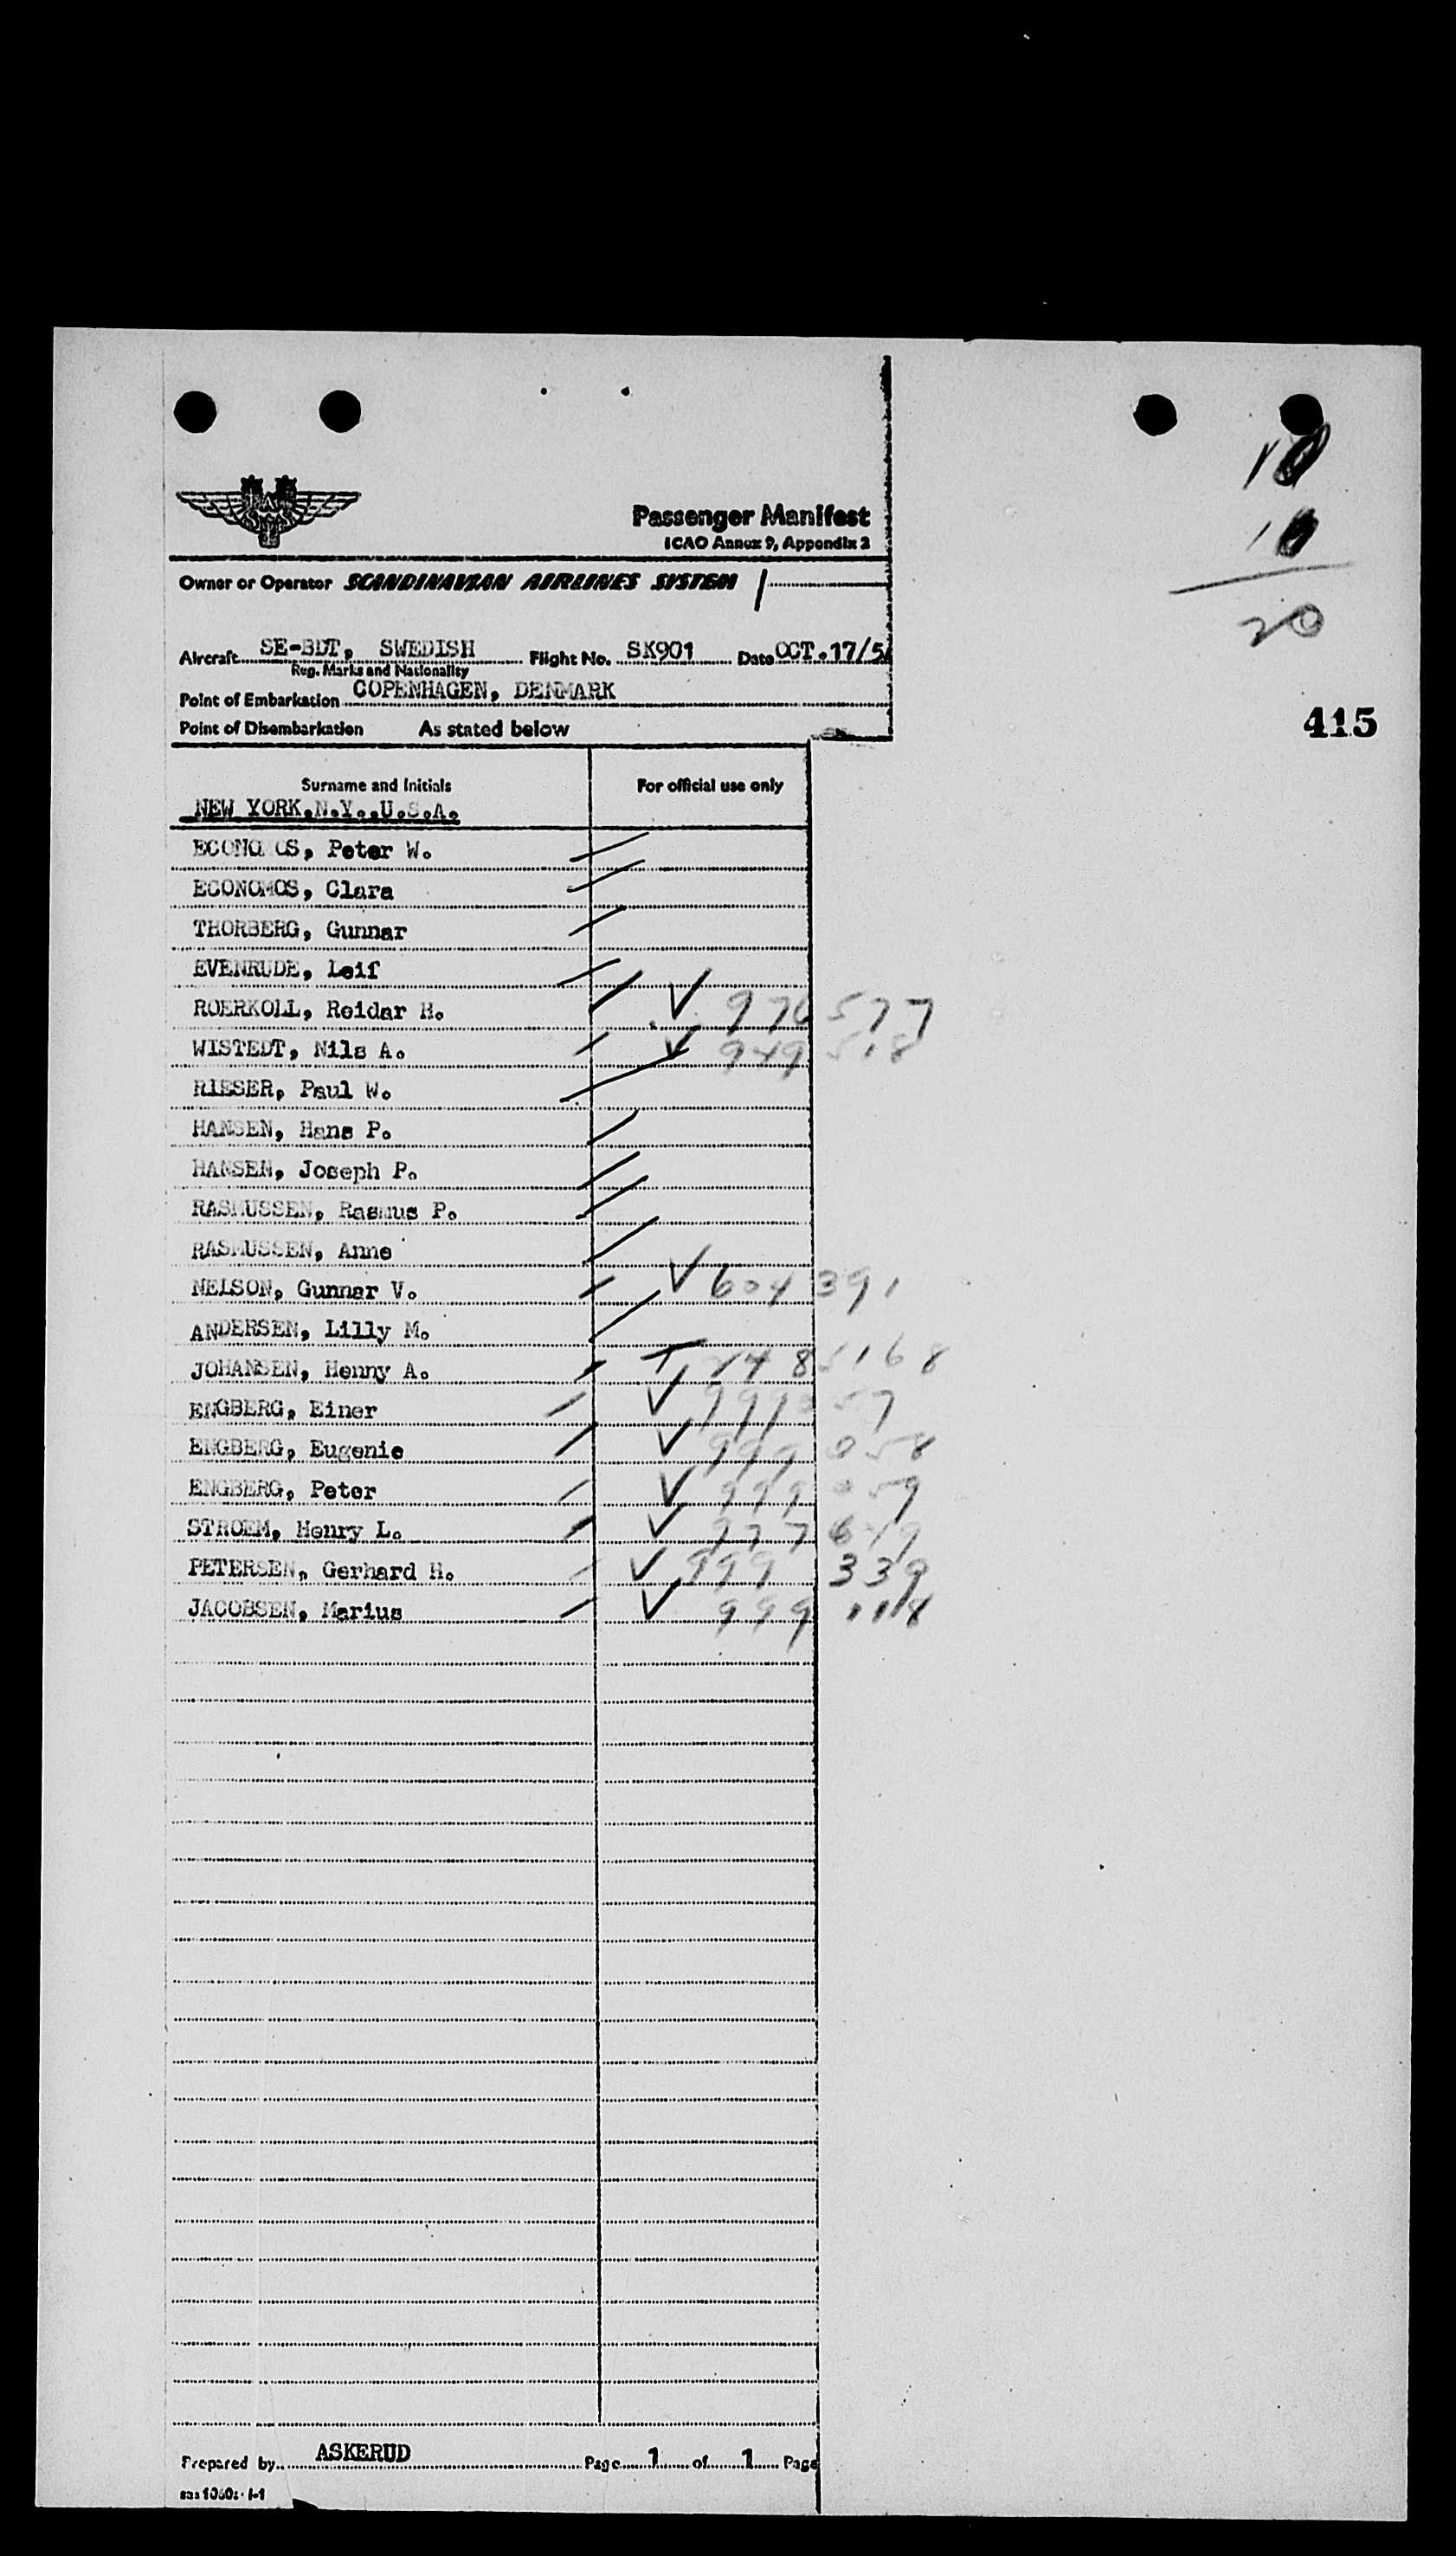 10
10
20
Passenger Manifest
ICAO Annex 9, Appendix 2
Owner or Operator SCANDINAVIAN AIRLINES SYSTEM
Aircraft SE-BDT, SWEDISH Flight No. SK901 Date OCT.17/5
Reg. Marks and Nationality
Point of Embarkation COPENHAGEN, DENMARK
415
Point of Disembarkation As stated below
Surname and Initials For official use only
NEW YORK.N.Y.,U.S.A.
ECONOMOS, Peter W.
ECONOMOS, Clara
THORBERG, Gunnar
EVENRUDE, Leif
ROERKOLL, Reidar H. 976577
WISTEDT, Nils A. 949518
RIESER, Paul W.
HANSEN, Hans P.
HANSEN, Joseph P.
RASMUSSEN, Rasmus P.
RASMUSSEN, Anne
NELSON, Gunnar V. 604391
ANDERSEN, Lilly M.
JOHANSEN, Henny A.
ENGBERG, Einer 999057
ENGBERG, Eugenie 999058
ENGBERG, Peter 999059
STROEM, Henry L.
PETERSEN, Gerhard H. 999 339
JACOBSEN, Marius 999 118
Prepared by ASKERUD Page 1 of 1 Page